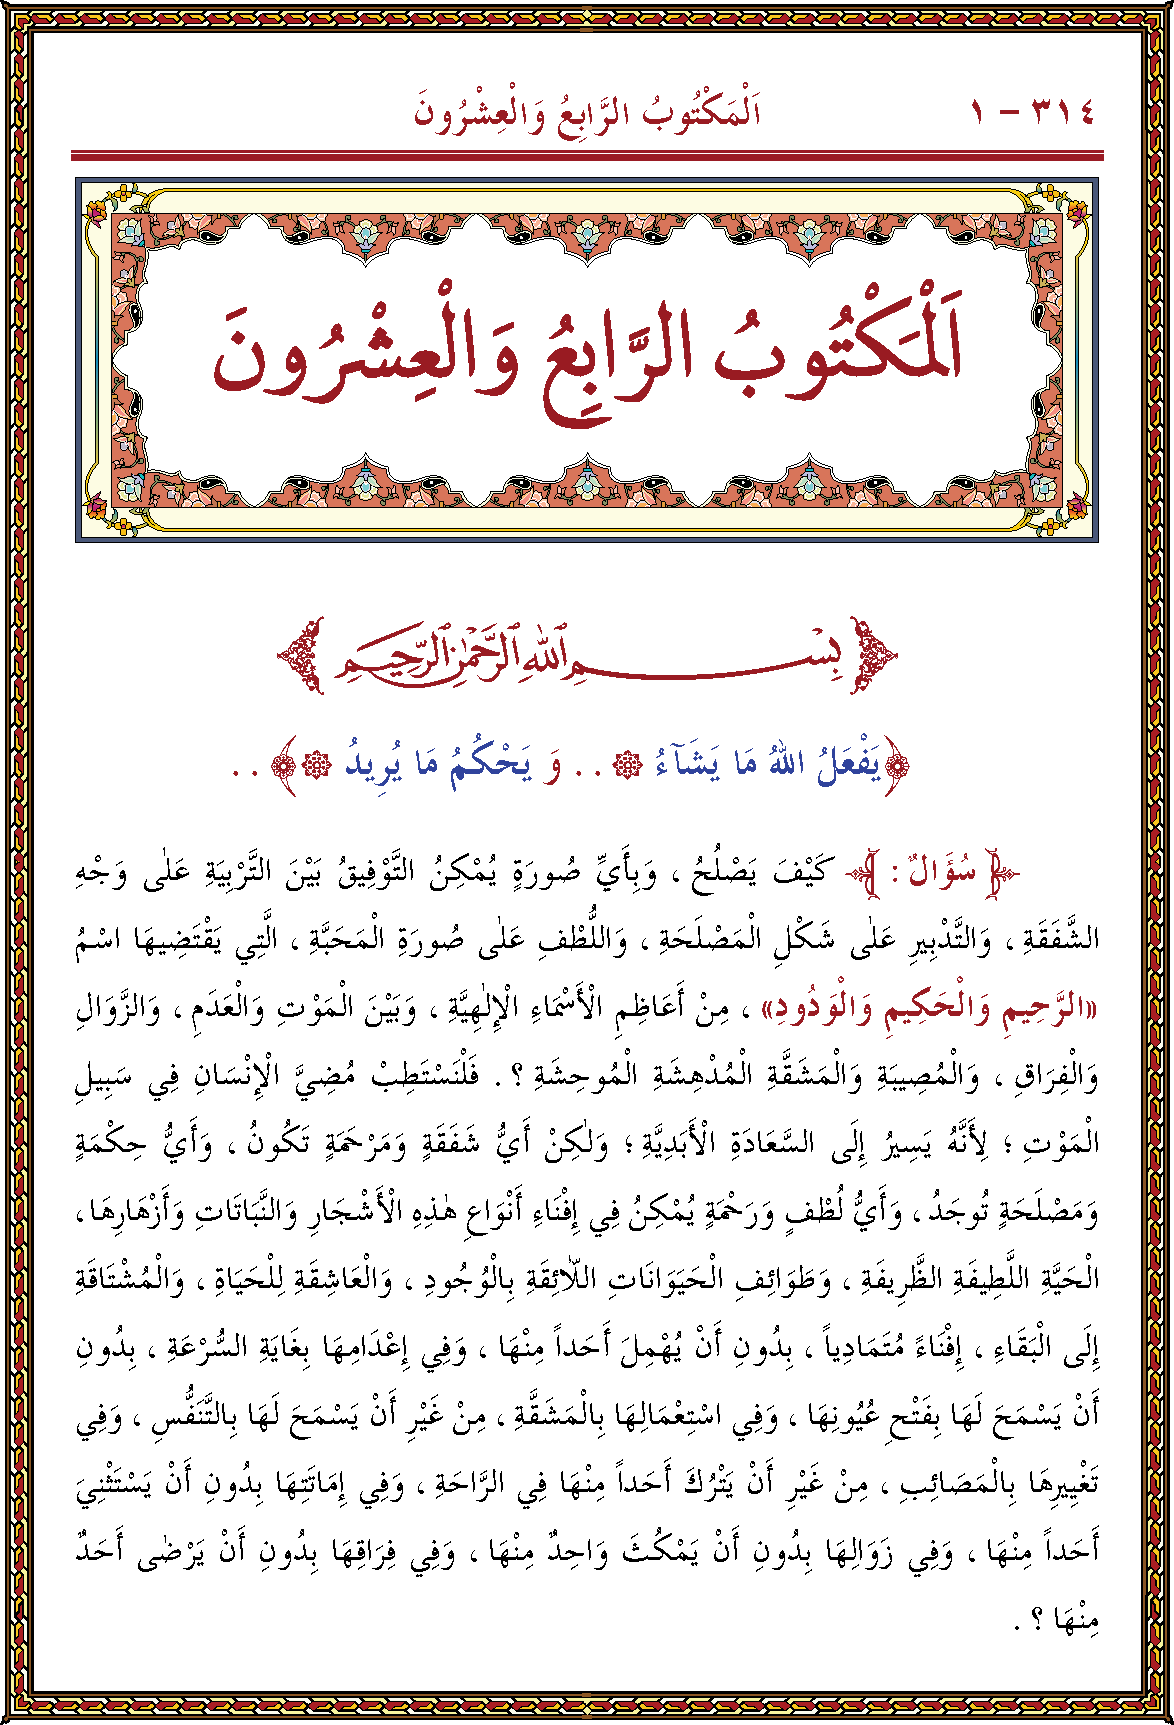 ٣١٤ – ١ اَلْمَكْتُوبُ الرَّابِعُ وَالْعِشْرُونَ
اَلْمَكْتُوبُ الرَّابِعُ وَالْعِشْرُونَ
بِسْمِ اللهِ الرَّحْمٰنِ الرَّحِيمِ
﴿يَفْعَلُ اللهُ مَا يَشَآءُ ۞ . . وَ يَحْكُمُ مَا يُرِيدُ ۞﴾ . .
﴿ سُؤَالٌ : ﴾ كَيْفَ يَصْلُحُ ، وَبِأَيِّ صُورَةٍ يُمْكِنُ التَّوْفِيقُ بَيْنَ التَّرْبِيَةِ عَلٰى وَجْهِ
الشَّفَقَةِ ، وَالتَّدْبِيرِ عَلٰى شَكْلِ الْمَصْلَحَةِ ، وَاللُّطْفِ عَلٰى صُورَةِ الْمَحَبَّةِ ، الَّتِي يَقْتَضِيهَا اسْمُ
«الرَّحِيمِ وَالْحَكِيمِ وَالْوَدُودِ» ، مِنْ أَعَاظِمِ الْأَسْمَاءِ الْإِلٰهِيَّةِ ، وَبَيْنَ الْمَوْتِ وَالْعَدَمِ ، وَالزَّوَالِ
وَالْفِرَاقِ ، وَالْمُصِيبَةِ وَالْمَشَقَّةِ الْمُدْهِشَةِ الْمُوحِشَةِ ؟ . فَلْنَسْتَطِبْ مُضِيَّ الْإِنْسَانِ فِي سَبِيلِ
الْمَوْتِ ؛ لِأَنَّهُ يَسِيرُ إِلَى السَّعَادَةِ الْأَبَدِيَّةِ ؛ وَلٰكِنْ أَيُّ شَفَقَةٍ وَمَرْحَمَةٍ تَكُونُ ، وَأَيُّ حِكْمَةٍ
وَمَصْلَحَةٍ تُوجَدُ ، وَأَيُّ لُطْفٍ وَرَحْمَةٍ يُمْكِنُ فِي إِفْنَاءِ أَنْوَاعِ هٰذِهِ الْأَشْجَارِ وَالنَّبَاتَاتِ وَأَزْهَارِهَا ،
الْحَيَّةِ اللَّطِيفَةِ الظَّرِيفَةِ ، وَطَوَائِفِ الْحَيَوَانَاتِ اللَّائِقَةِ بِالْوُجُودِ ، وَالْعَاشِقَةِ لِلْحَيَاةِ ، وَالْمُشْتَاقَةِ
إِلَى الْبَقَاءِ ، إِفْنَاءً مُتَمَادِياً ، بِدُونِ أَنْ يُهْمِلَ أَحَداً مِنْهَا ، وَفِي إِعْدَامِهَا بِغَايَةِ السُّرْعَةِ ، بِدُونِ
أَنْ يَسْمَحَ لَهَا بِفَتْحِ عُيُونِهَا ، وَفِي اسْتِعْمَالِهَا بِالْمَشَقَّةِ ، مِنْ غَيْرِ أَنْ يَسْمَحَ لَهَا بِالتَّنَفُّسِ ، وَفِي
تَغْيِيرِهَا بِالْمَصَائِبِ ، مِنْ غَيْرِ أَنْ يَتْرُكَ أَحَداً مِنْهَا فِي الرَّاحَةِ ، وَفِي إِمَاتَتِهَا بِدُونِ أَنْ يَسْتَثْنِيَ
أَحَداً مِنْهَا ، وَفِي زَوَالِهَا بِدُونِ أَنْ يَمْكُثَ وَاحِدٌ مِنْهَا ، وَفِي فِرَاقِهَا بِدُونِ أَنْ يَرْضٰى أَحَدٌ
مِنْهَا ؟ .